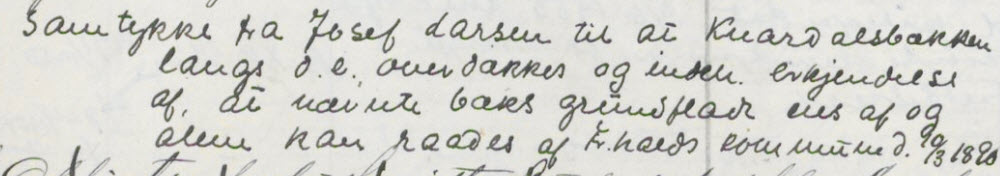 Samtykke fra Josef Larsen til at Kvardalsbækken
langs d.e. overdækkes og inden. erkjendelse
af, at nævnte bæks grundflade eies af og
alene kan raades af Fr.halds kommune d. 10/3 1890